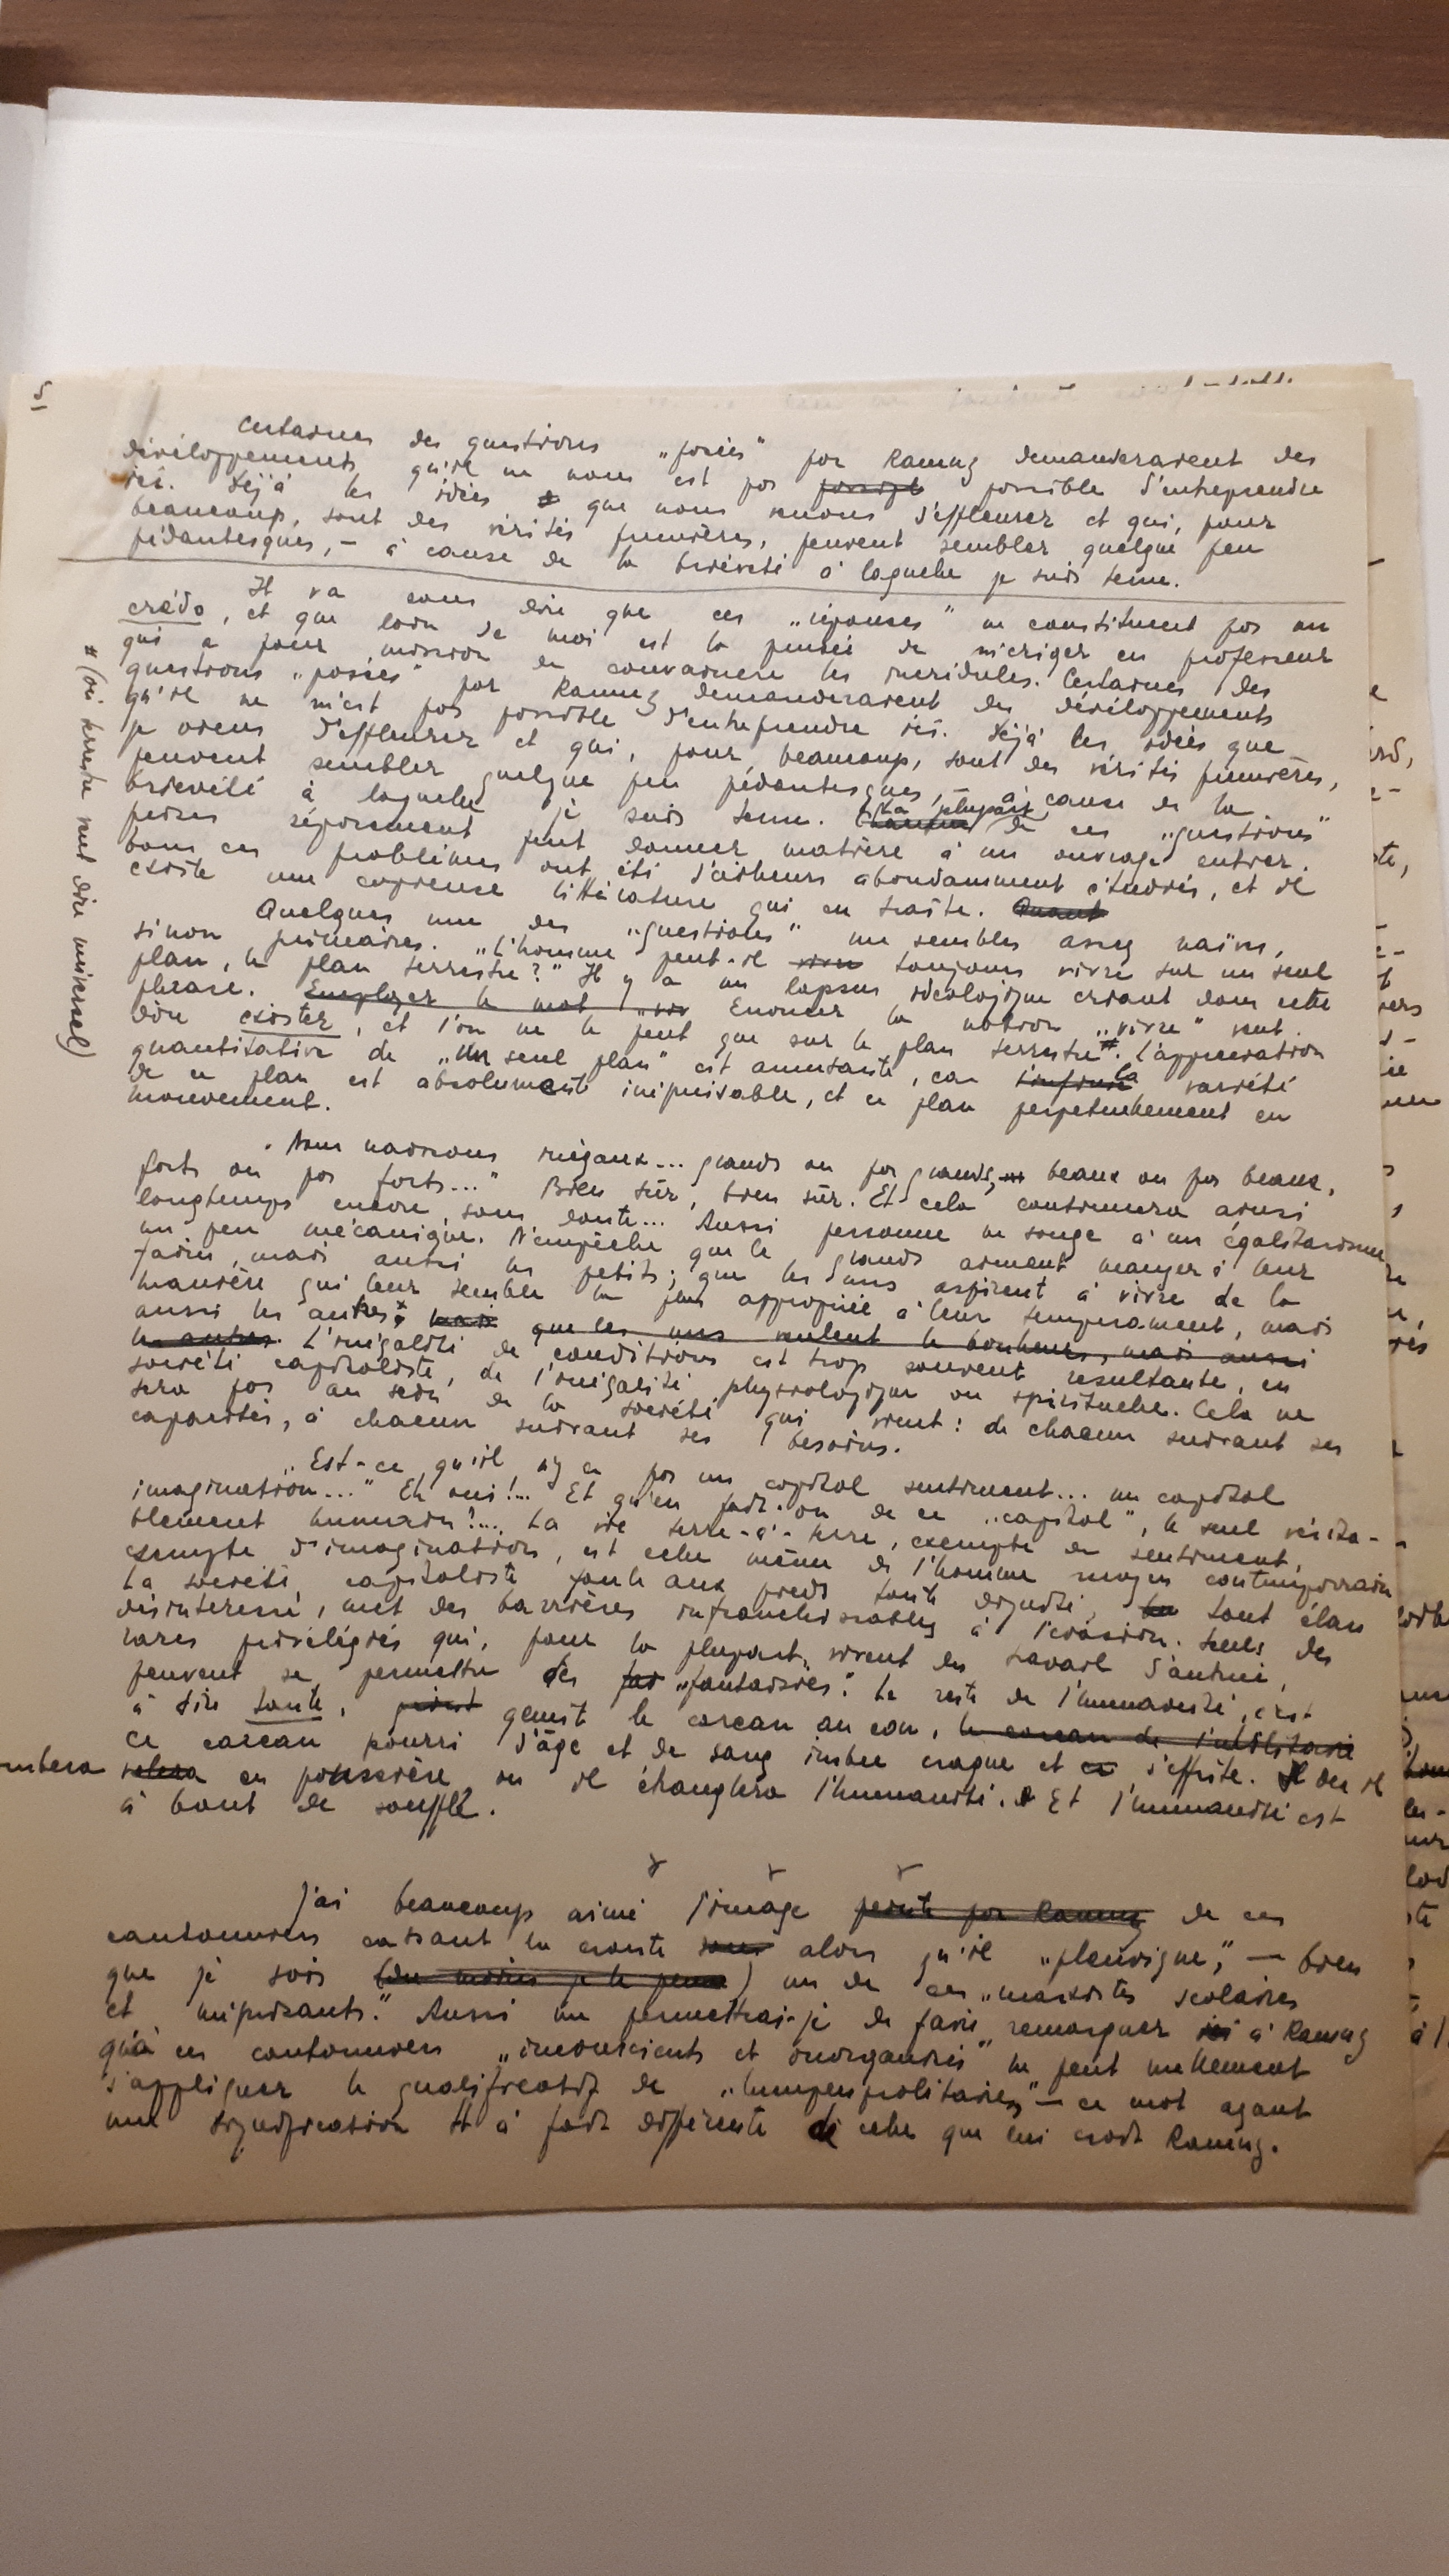 5
Certaines des questions „posées" par Ramuz demanderaient des
développements qu'il ne nous est pas possible possible d'entreprendre
ici. Déjà les idées que nous venons d'effleurer et qui, pour
beaucoup, sont des vérités premières, peuvent sembler quelque peu
pédantesques, – à cause de la brièveté à laquelle je suis tenu.
Il va sans dire que ces „réponses" ne constituent pas un
crédo, et que loin de moi est la pensée de m'ériger en professeur
qui a pour mission de convaincre les incrédules. Certaines des
questions „posées" par Ramuz demanderaient des développements
qu'il ne m'est pas possible d'entreprendre ici. Déjà les idées que
je viens d'effleurer et qui, pour beaucoup, sont des vérités premières,
peuvent sembler quelque peu pédantesques, – à cause de la
brièveté à laquelle je suis tenu. Chacune La plupart de ces „questions"
prises séparément peut donner matière à un ouvrage entier.
Tous ces problèmes ont été d'ailleurs abondamment étudiés, et il
existe une copieuse littérature qui en traite. Quant
Quelques unes des „questions" me sembles assez naïves,
sinon primaires. „L'homme peut-il vivre toujours vivre sur un seul
plan, le plan terrestre?" Il y a un lapsus idéologique criant dans cette
phrase. Employer le mot „viv Enoncer la notion „vivre" veut
dire exister, et l'on ne le peut que sur le plan terrestre#. L'appréciation
quantitative de „Un seul plan" est amusante, car la variété
de ce plan est absolument inépuisable, et ce plan perpétuellement en
mouvement.
# (où terrestre veut dire universel)
„Nous naissons inégaux... grands ou pas grands, beaux ou pas beaux,
forts ou pas forts..." Bien sûr, bien sûr. Et cela continuera ainsi
longtemps encore, sans doute... Aussi personne ne songe à un égalitarisme
un peu mécanique. N'empêche que les grands aiment manger à leur
faim, mais aussi les petits; que les uns aspirent à vivre de la
manière qui leur semble la plus appropriée à leur tempérament, mais
aussi les autres; mais que les uns veulent le bonheur, mais aussi
les autres. L'inégalité de conditions est trop souvent résultante, en
société capitaliste, de l'inégalité physiologique ou spirituelle. Cela ne
sera pas au sein de la société qui vient: de chacun suivant ses
capacités, à chacun suivant ses besoins.
„Est-ce qu'il n'y a pas un capital sentiment... un capital
imagination..." Eh oui!... Et qu'en fait-on de ce „capital", le seul vérita-
blement humain?... La vie terre-à-terre, exempte de sentiment,
exempte d'imagination, est celle même de l'homme moyen contemporain
La société capitaliste foule aux pieds toute dignité, tout élan
désintéressé, met des barrières infranchissables à l'évasion. Seuls des
rares privilégiés qui, pour la plupart, vivent du travail d'autrui,
peuvent se permettre des fan „fantaisies". Le reste de l'humanité, c'est
à dire toute, gémit le carcan au cou, le carcan de l'utilitaire
Ce carcan pourri d'âge et de sang imbu craque et s'effrite. Il ou il
tombera en poussière, ou il étranglera l'humanité. Et l'humanité est
à bout de souffle.
J'ai beaucoup aimé l'image peinte par Ramuz de ces
cantonniers cassant la croute sous alors qu'il „pleuvigne", – bien
que je sois (du moins je le pense) un de ces „marxistes scolaires
et méprisants." Aussi me permettrai-je de faire remarquer ici à Ramuz
qu'à ces cantonniers „inconscients et inorganisés" ne peut nullement
s'appliquer le qualificatif de „lumpenprolétaires" – ce mot ayant
une signification tt à fait différente de celle que lui croit Ramuz.